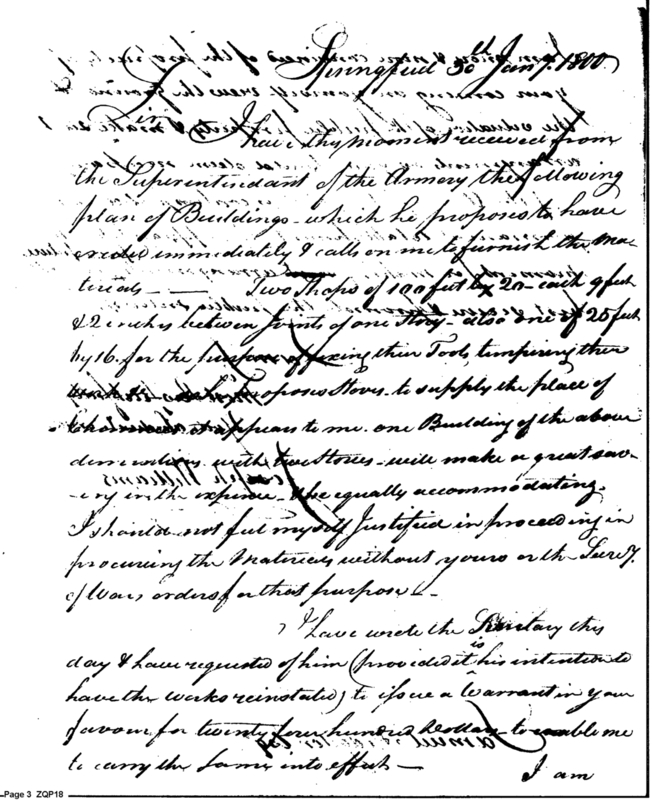 Springfield 30th Jany. 1800
Sir
I have this moment received from
the Superintendant of the Armory the following
plan of Buildings - which he proposes to have
erected immediately & calls on me to furnish the Ma
terials — Two Shops of 100 feet by 20 - each 9 feet
& 2 inches between joints of one Story - also one of 25 feet
by 16. for the purpose of fixing their Tools, tempering their
he proposes Stoves - to supply the place of
it appears to me one Building of the above
dimentions with two Stories - will make a great sav-
ing in the expence - & be equally accommodating.
I should not feel myself Justified in proceeding in
procuring the Materials without yours or the Secrey.
of Wars orders for that purpose —
I have wrote the Secretary this
day & have requested of him (provided it is his intention to
have the works reinstated) to issue a Warrant in your
favour for twenty four hundred Dollars - to enable me
to carry the same into effect —
I am
Page 3 ZQP18